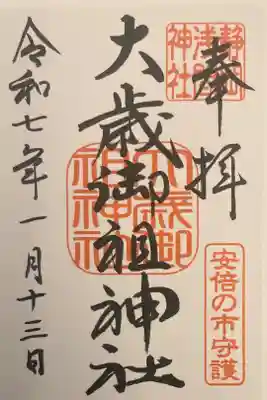 奉拝
静岡
浅間
神社
大歳御祖神社
大歳御
祖神社
安倍の市守護
令和七年一月十三日